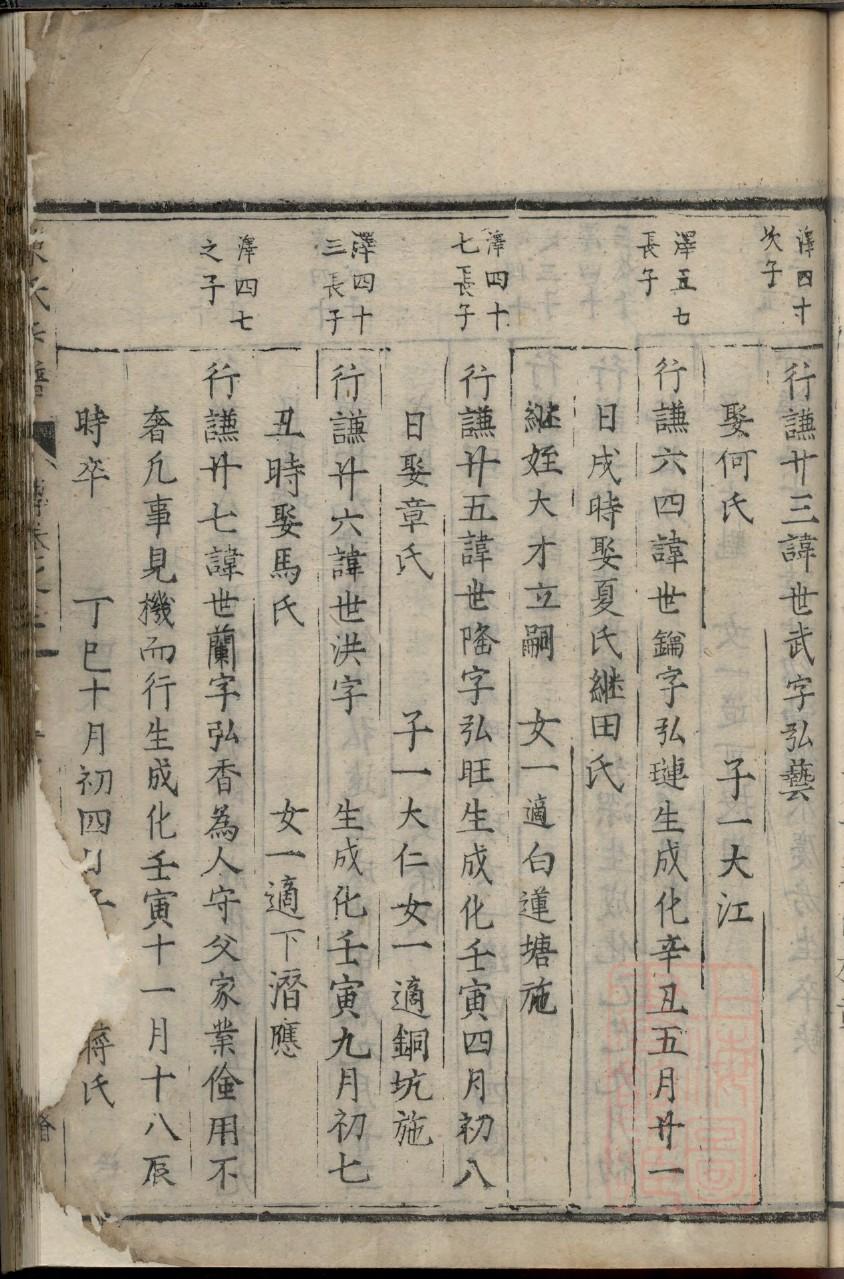 澤四十
次子
行謙廿三諱世武字弘藝
娶何氏　子一大江
澤五七
長子
行謙六四諱世鑰字弘璉生成化辛丑五月廿一
日戌時娶夏氏継田氏
継姪大才立嗣　女一適白蓮塘施
澤四十
七長子
行謙廿五諱世隆字弘旺生成化壬寅四月初八
日娶章氏　子一大仁女一適銅坑施
澤四十
三長子
行謙廿六諱世洪字　生成化壬寅九月初七
丑時娶馬氏　女一適下潛應
澤四七
之子
行謙廿七諱世蘭字弘香為人守父家業儉用不
奢凡事見機而行生成化壬寅十一月十八辰
時卒　丁巳十月初四　蔣氏